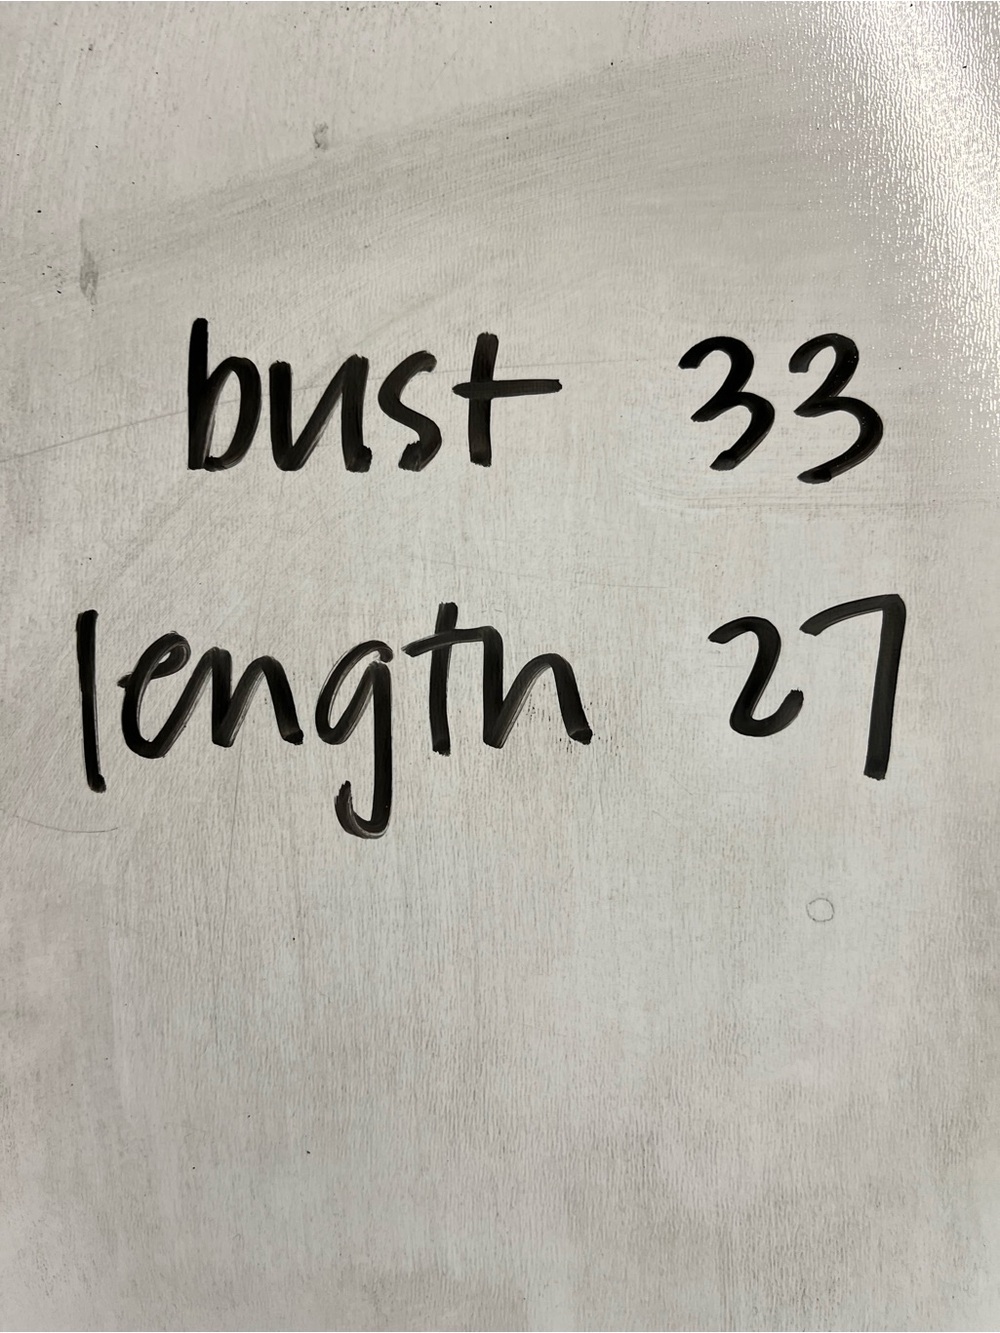 bust 33
length 27